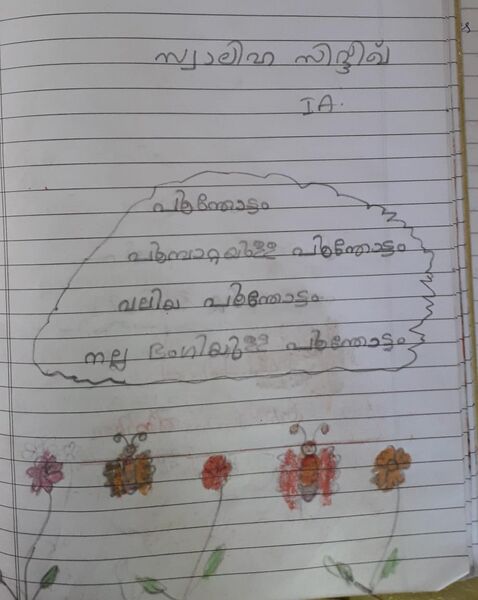 സ്വാലിഹ സിദ്ദീഖ്
I A.
പൂന്തോട്ടം
പൂമ്പാറ്റയുള്ള പൂന്തോട്ടം
വലിയ പൂന്തോട്ടം
നല്ല ഭംഗിയുള്ള പൂന്തോട്ടം